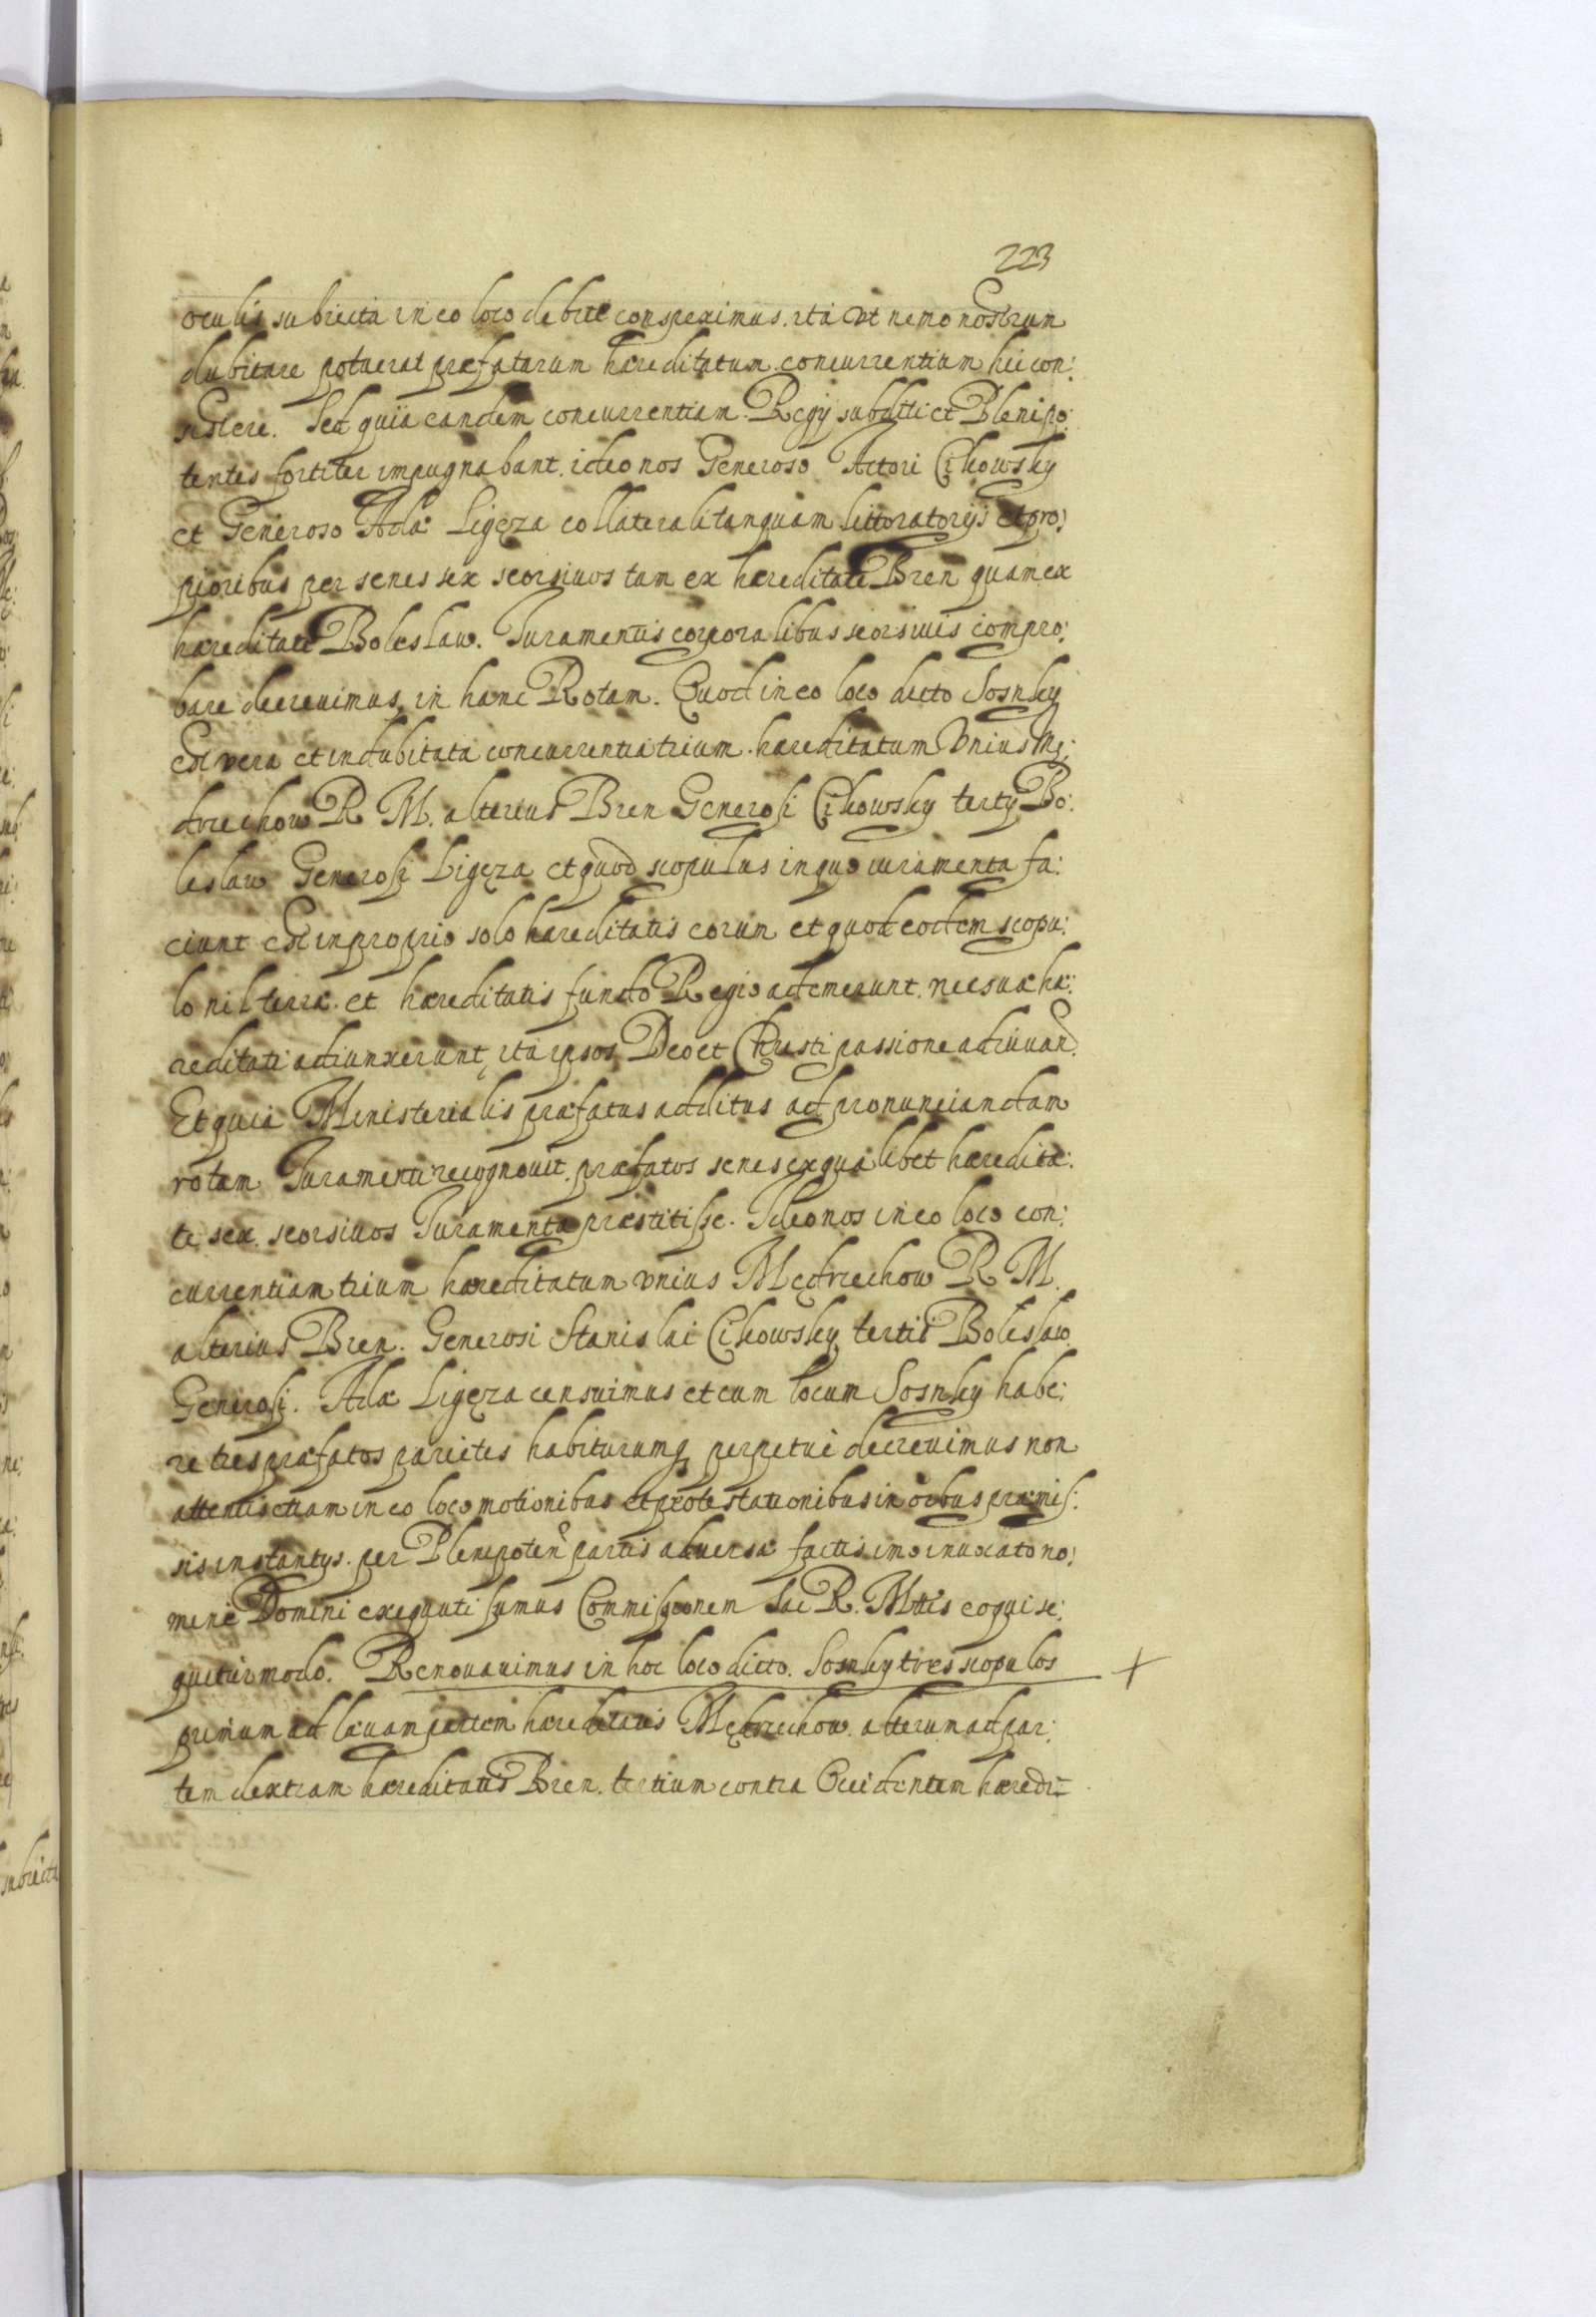 223
oculis subiecta in eo loco debite conspeximus. ita vt nemo nostrum
dubitare potuerat praefatarum haereditatum concurrentium hei con:
sistere. Sed quia eandem concurrentiam Regij subditi et Plenipo:
tentes fortiter impugnabant. ideo nos Generoso Actori Cikowsky
et Generoso Adae Ligęza collaterali tanquam littoratorijs et pro:
pioribus per senes sex seorsiuos tam ex haereditate Bren quam ex
haereditate Boleslaw. Juramentis corporalibus seorsiuis compro:
bare decreuimus, in hanc Rotam. Quod in eo loco dicto Sosnky
est vera et indubitata concurrentia trium haereditatum Vnius Mę:
drzechow R M. alterius Bren Generosi Cikowsky tertij Bo:
leslaw Generosi Ligęza et quod scopulus in quo iuramenta fa:
ciunt est in proprio solo haereditatis eorum et quod eodem scopu:
lo nil terrae et haereditatis fundo Regio ademerunt. nec suae hae:
reditati adiunxerunt, ita ipsos Deo et Christi passione adiuuand.
Et quia Ministerialis praefatus additus ad pronunciandam
rotam Juramenti recognouit. praefatos senes ex qualibet haeredita:
te sex seorsiuos Juramenta praestitisse. Ideo nos in eo loco con:
currentiam trium haereditatum vnius Mędrzechow R M.
alterius Bren. Generosi Stanislai Cikowsky tertii Boleslaw
Generosi. Adae Ligęza censuimus et eum locum Sosnky habe:
re tres praefatos parietes habiturumq perpetue decreuimus non
attentis etiam in eo loco motionibus et protestationibus in oibus praemis:
sis instantijs. per Plenipoten partis aduersae factis imo inuocato no:
mine Domini exequuti sumus Commissionem Sac R. Mttis eo qui se:
quitur modo. Renouauimus in hoc loco dicto. Sosnky tres scopulos +
primum ad laeuam partem haereditatis Mędrzechow. alterum ad par:
tem dextram haereditatis Bren. tertium contra Occidentem haeredi=